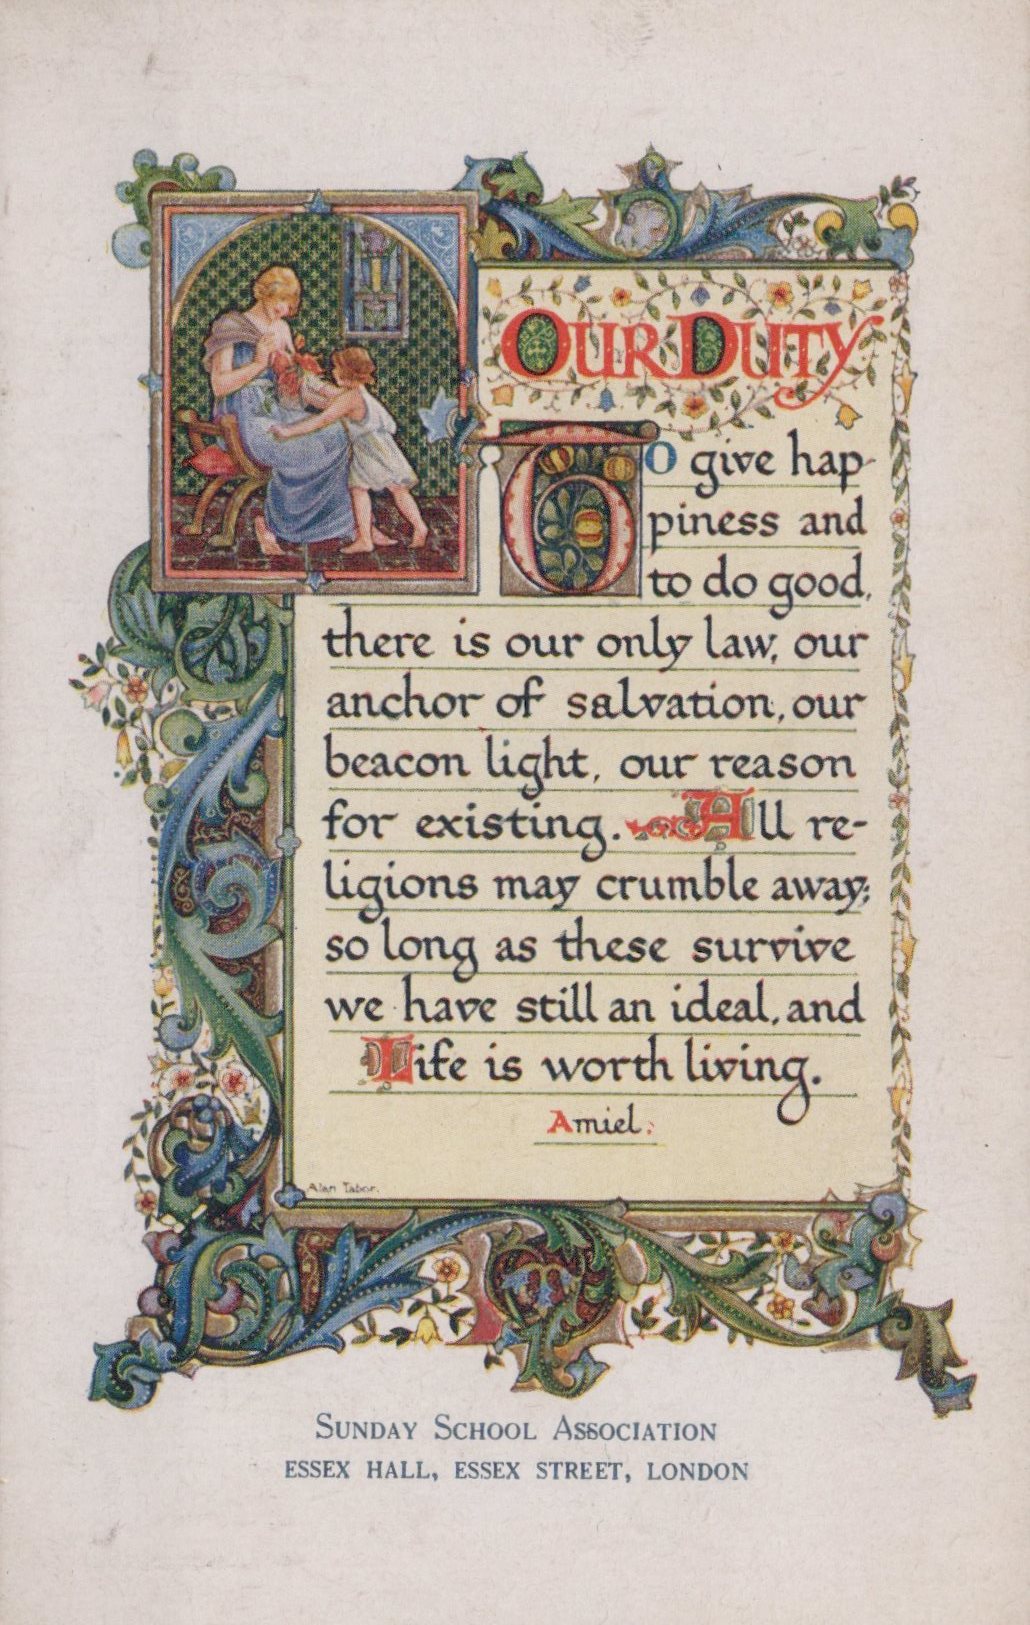 OUR DUTY
To give hap-
piness and
to do good,
there is our only law, our
anchor of salvation, our
beacon light, our reason
for existing. All re-
ligions may crumble away;
so long as these survive
we have still an ideal, and
Life is worth living.
Amiel.
Alan Tabor.
SUNDAY SCHOOL ASSOCIATION
ESSEX HALL, ESSEX STREET, LONDON